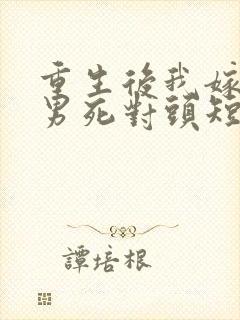 重生後我嫁
男死對頭短
譚培根